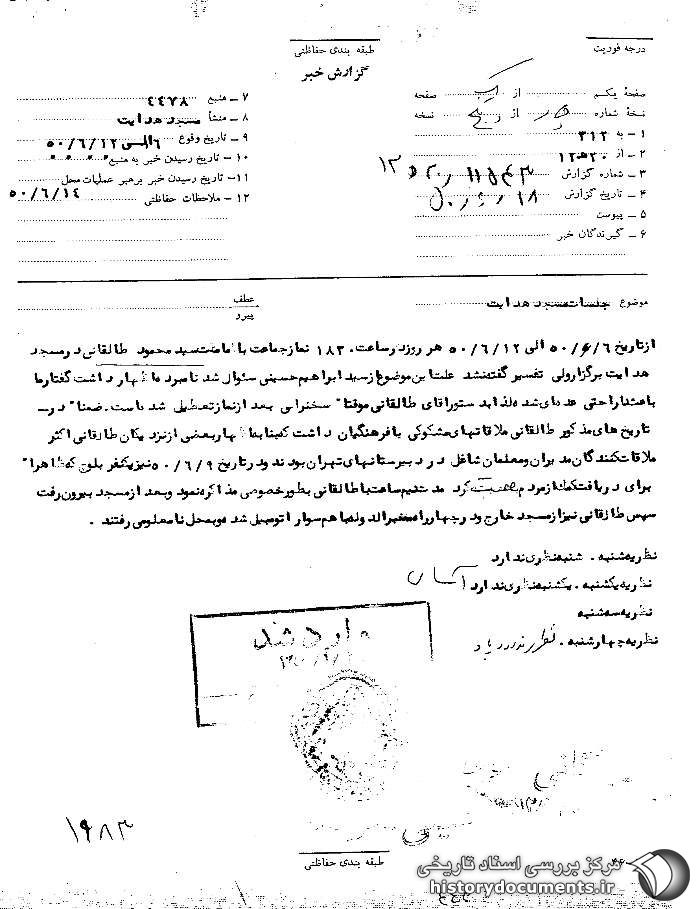 درجه فوریت
طبقه بندی حفاظتی
گزارش خبر
صفحهٔ یکم از یک صفحه
نسخهٔ شماره از پنج نسخه
۱ - به ۳۱۲
۲ - از ۱۲۵۲۰
۳ - شماره گزارش
۴ - تاریخ گزارش
۵ - پیوست
۶ - گیرندگان خبر
۷ - منبع ۴۴۷۸
۸ - منشأ مسجد هدایت
۹ - تاریخ وقوع ۶ الی ۵۰/۶/۱۲
۱۰ - تاریخ رسیدن خبر به منبع
۱۱ - تاریخ رسیدن خبر برهبر عملیات محل ۵۰/۶/۱۴
۱۲ - ملاحظات حفاظتی
موضوع جلسات مسجد هدایت
عطف
پیرو
ازتاریخ ۵۰/۶/۶ الی ۵۰/۶/۱۲ هر روز درساعت نماز جماعت با امامت سید محمود طالقانی در مسجد
هدایت برگزار ولی تفسیر گفته نشد علت این موضوع از سید ابراهیم حسینی سئوال شد نامبرده اظهار داشت گفتار ما
باعث ناراحتی عده ای شده لذا بدستور اقای طالقانی موقتا" سخنرانی بعد از نماز تعطیل شده است. ضمنا" در
تاریخ های مذکور طالقانی ملاقاتهای مشکوکی با فرهنگیان داشت که بنا به اظهار بعضی از نزدیکان طالقانی اکثر
ملاقات کنندگان مدیران ومعلمان شاغل در دبیرستانهای تهران بودند ودر تاریخ ۵۰/۶/۹ نیز یکنفر بلوچ که ظاهرا"
برای دریافت کمک از مردم صحبت کرد مدت نیم ساعت با طالقانی بطور خصوصی مذاکره نمود وبعد از مسجد بیرون رفت
سپس طالقانی نیز از مسجد خارج ودر چهارراه مخبرالدوله با هم سوار اتومبیل شده وبمحل نامعلومی رفتند .
نظریه شنبه . شنبه نظری ندارد
نظریه یکشنبه . یکشنبه نظری ندارد
نظریه سه شنبه
نظریه چهارشنبه . نظری ندارد
وارد شد
۱۹۸۳
طبقه بندی حفاظتی
مرکز بررسی اسناد تاریخی
historydocuments.ir